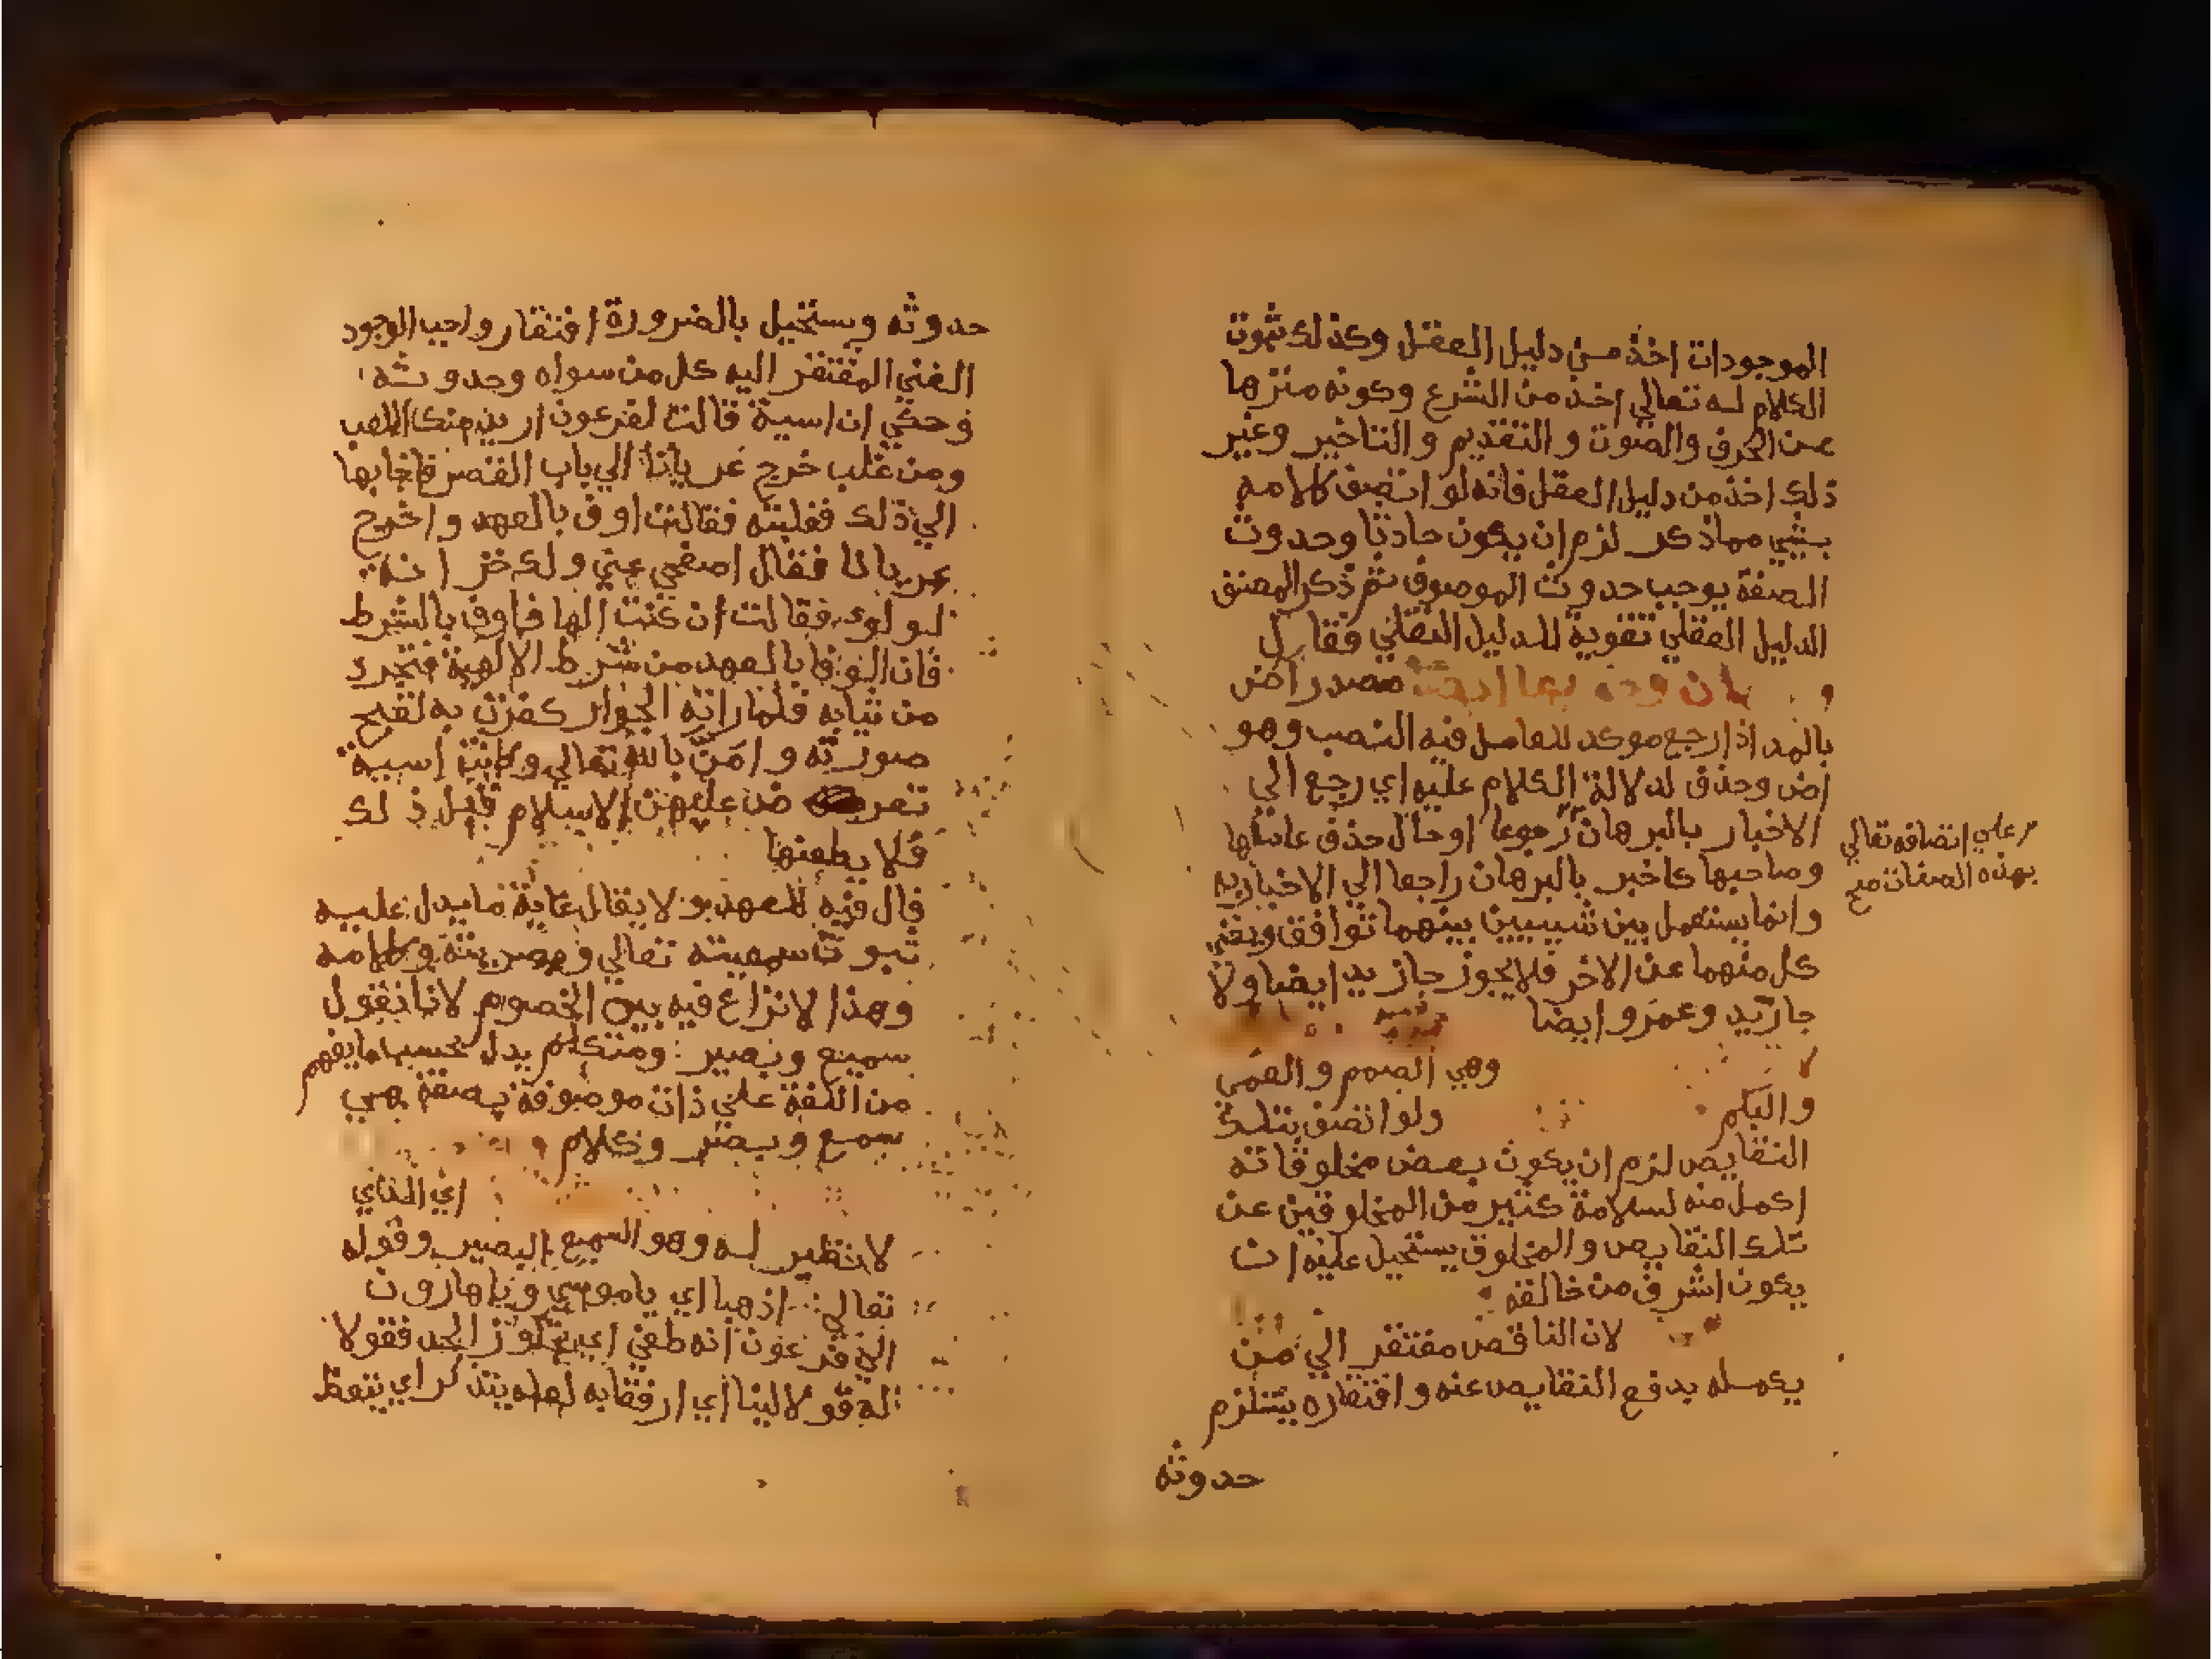 الموجودات اخذ من دليل العقل وكذلك ثبوت
الكلام له تعالي اخذ من الشرع وكونه منزها
عن الحرف والصوت والتقديم والتاخير وغير
ذلك اخذ من دليل العقل فانه لو اتصف كلامه
بشيي مما ذكر لزم ان يكون حادثا وحدوث
الصفة يوجب حدوث الموصوف ثم ذكر المصنف
الدليل العقلي تقوية للدليل النقلي فقال
مصدر اض
بالمد اذا رجع موكد للعامل فيه النصب وهو
اض وحذف لدلالة الكلام عليه اي رجع الي
الاخبار بالبرهان رجوعا او حال حذف عاملها
وصاحبها كاخبر بالبرهان راجعا الي الاخبار به
علي اتصافه تعالي
بهذه الصفات مع
وانما يستعمل بين شييين بينهما توافق ويغني
كل منهما عن الاخر فلا يجوز جا زيد ايضا ولا
جا زيد وعمرو ايضا
وهي الصمم والعمي
والبكم ولو اتصف بتلك
النقايص لزم ان يكون بعض مخلوقاته
اكمل منه لسلامة كثير من المخلوقين عن
تلك النقايص والمخلوق يستحيل عليه ان
يكون اشرف من خالقه
لان الناقص مفتقر الي من
يكمله بدفع النقايص عنه وافتقاره يستلزم
حدوثه
حدوثه ويستحيل بالضرورة افتقار واجب الوجود
الغني المفتقر اليه كل من سواه وحدوثه
وحكي ان اسية قالت لفرعون اريد منك اللعب
ومن غلب خرج عريانا الي باب القصر فاجابها
الي ذلك فغلبته فقالت اوف بالعهد واخرج
عريانا فقال اصفحي عني ولك خزانة
لولو فقالت ان كنت الها فاوف بالشرط
فان الوفا بالعهد من شرط الالهية فتجرد
من ثيابه فلما راته الجوار كفرن به لقبح
صورته وامن بالله تعالي وكانت اسية
تعرض عليهن الاسلام قبل ذلك
فلا يطعنها
قال فيه للعهد لا يقال غاية ما يدل عليه
ثبوت سمعيته تعالي وبصريته وكلامه
وهذا لا نزاع فيه بين الخصوم لانا نقول
سميع وبصير ومتكلم يدل بحسب ما يفهم
من اللغة علي ذات موصوفة بصفة هي
سمع وبصر وكلام
اي الذي
لا نظير له وهو السميع البصير وقوله
تعالي اذهبا اي يا موسي ويا هارون
الي فرعون انه طغي اي تجاوز الحد فقولا
له قولا لينا اي ارفقا به لعله يتذكر اي يتعظ